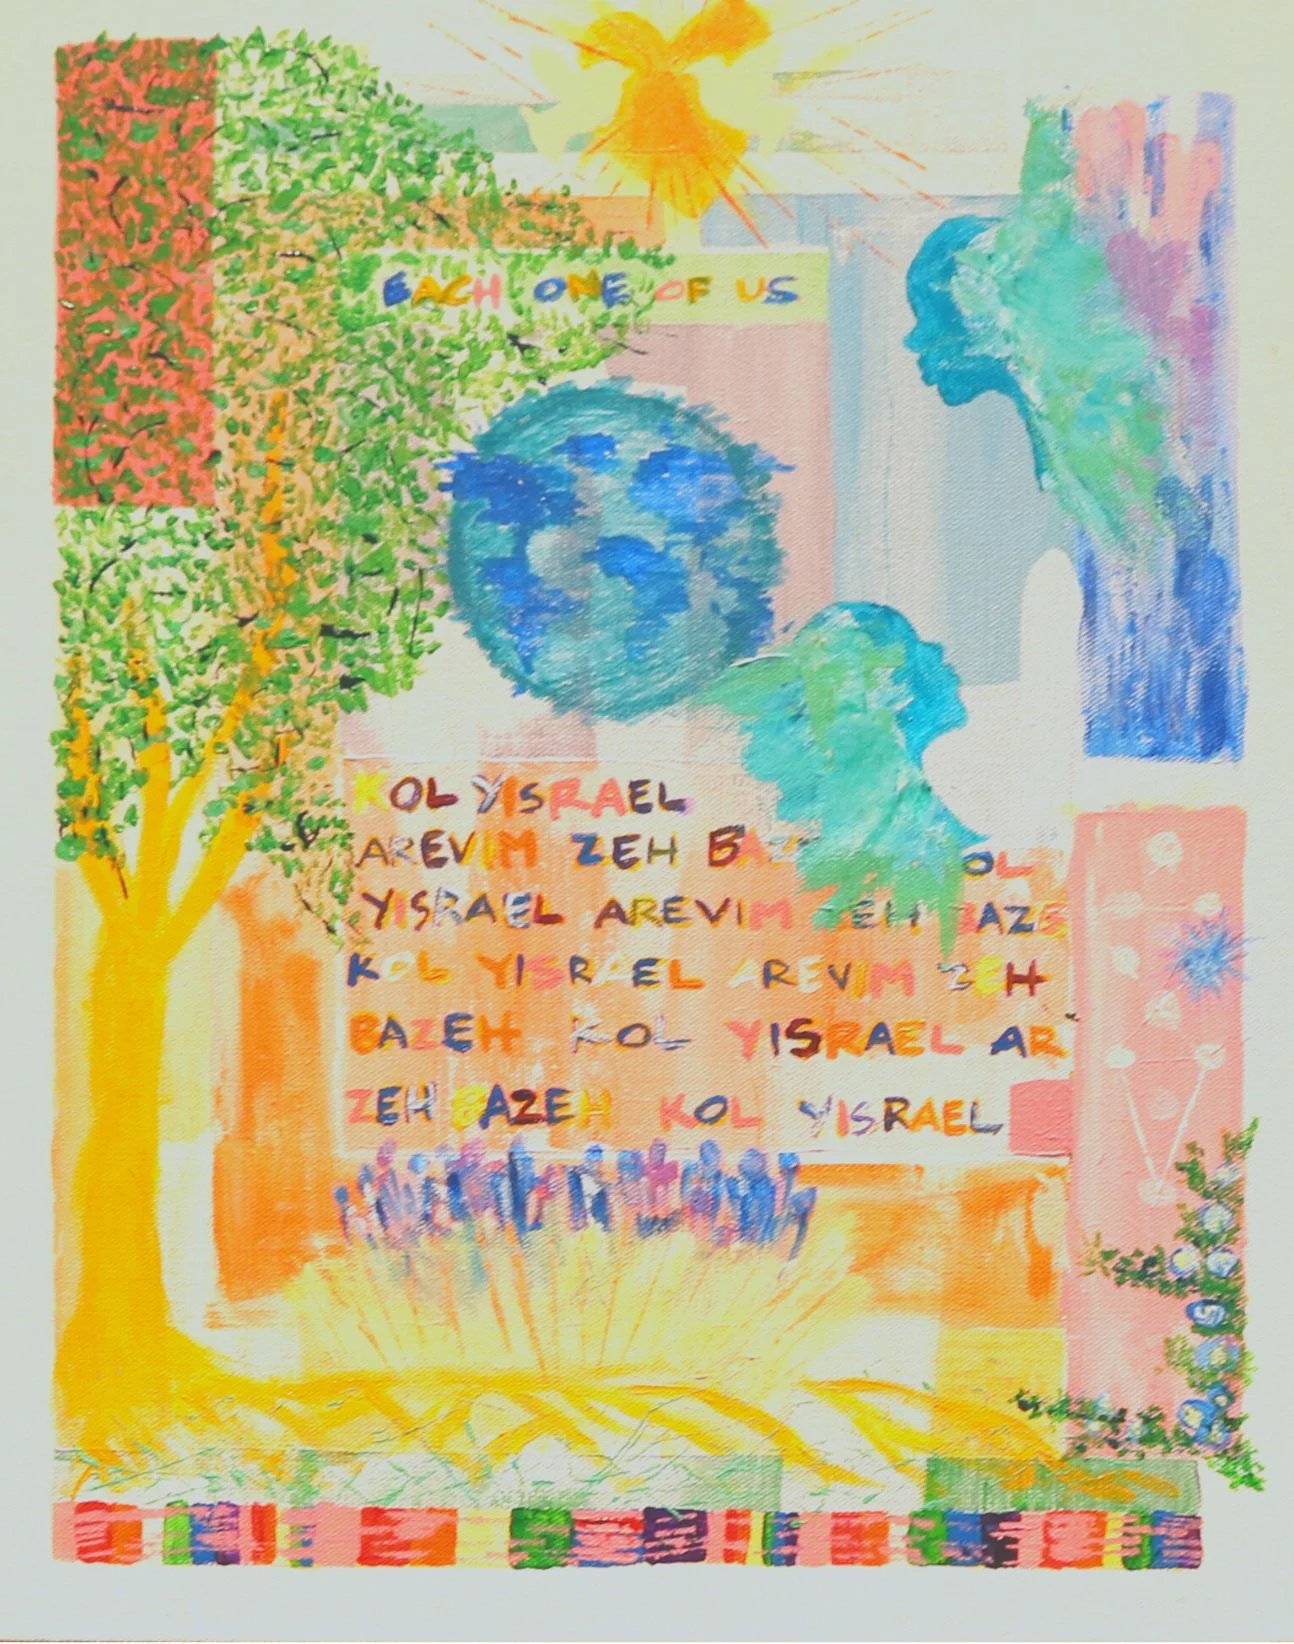 EACH ONE OF US
KOL YISRAEL
AREVIM ZEH BAZ OL
YISRAEL AREVIM ZEH BAZE
KOL YISRAEL AREVIM ZEH
BAZEH KOL YISRAEL AR
ZEH BAZEH KOL YISRAEL